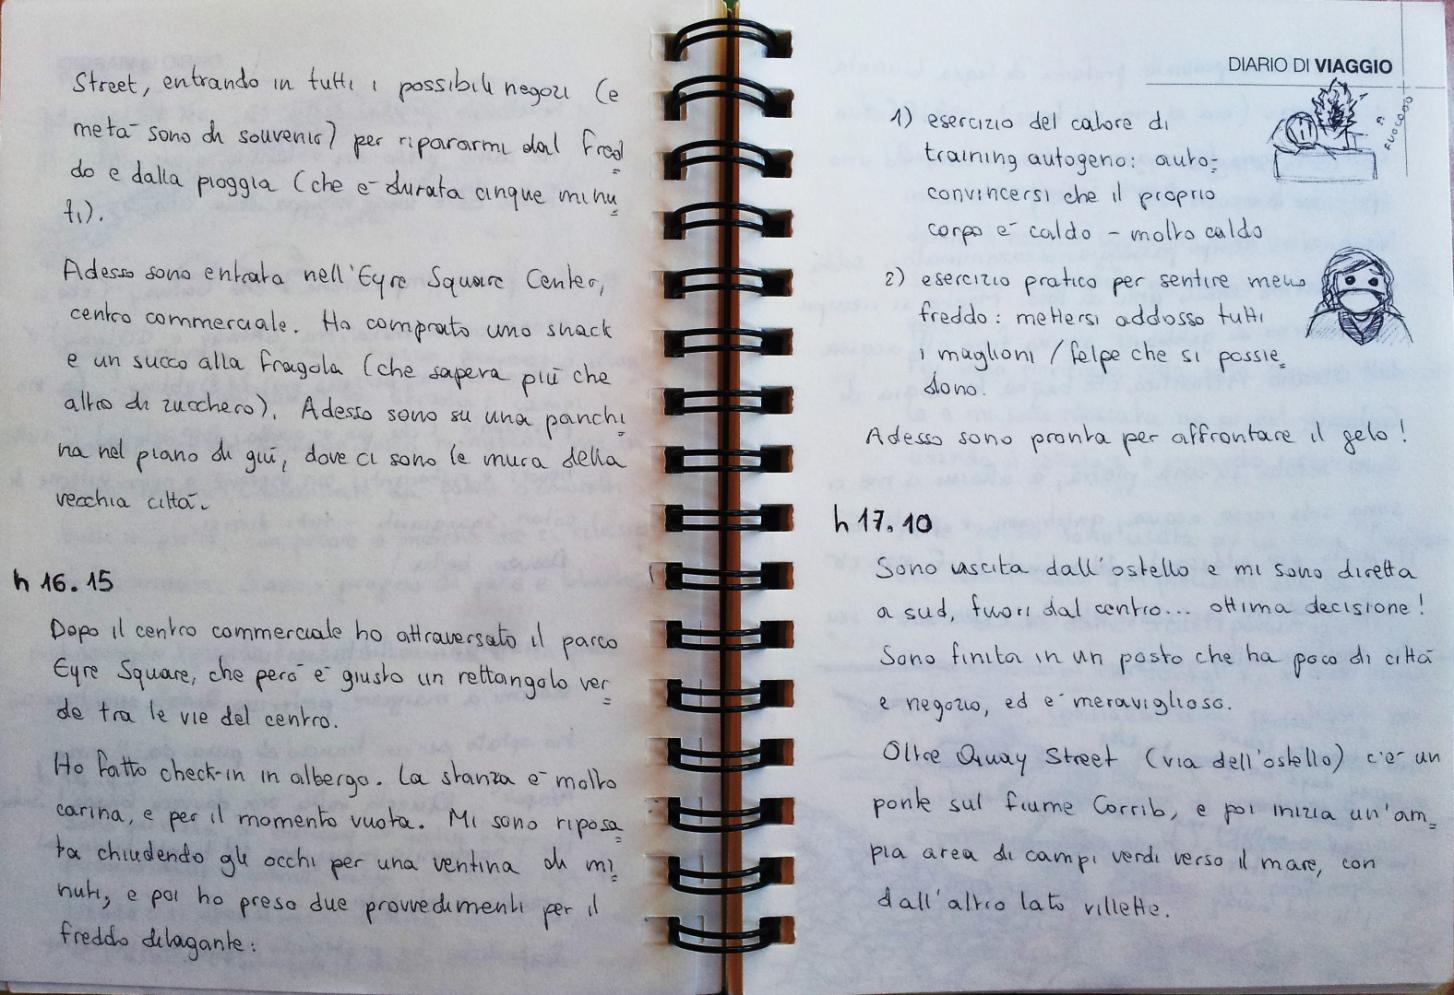 Street, entrando in tutti i possibili negozi (e
metà sono di souvenir) per ripararmi dal fred
do e dalla pioggia (che è durata cinque minu
ti).
Adesso sono entrata nell'Eyre Square Center,
centro commerciale. Ho comprato uno snack
e un succo alla fragola (che sapeva più che
altro di zucchero). Adesso sono su una panchi
na nel piano di giù, dove ci sono le mura della
vecchia città.
h 16.15
Dopo il centro commerciale ho attraversato il parco
Eyre Square, che però è giusto un rettangolo ver
de tra le vie del centro.
Ho fatto check-in in albergo. La stanza è molto
carina, e per il momento vuota. Mi sono riposa
ta chiudendo gli occhi per una ventina di mi
nuti, e poi ho preso due provvedimenti per il
freddo dilagante:
DIARIO DI VIAGGIO
1) esercizio del calore di
training autogeno: auto-
convincersi che il proprio
corpo è caldo - molto caldo
2) esercizio pratico per sentire meno
freddo: mettersi addosso tutti
i maglioni / felpe che si possie
dono.
Adesso sono pronta per affrontare il gelo!
h 17.10
Sono uscita dall'ostello e mi sono diretta
a sud, fuori dal centro... ottima decisione!
Sono finita in un posto che ha poco di città
e negozio, ed è meraviglioso.
Oltre Quay Street (via dell'ostello) c'è un
ponte sul fiume Corrib, e poi inizia un'am
pia area di campi verdi verso il mare, con
dall'altro lato villette.